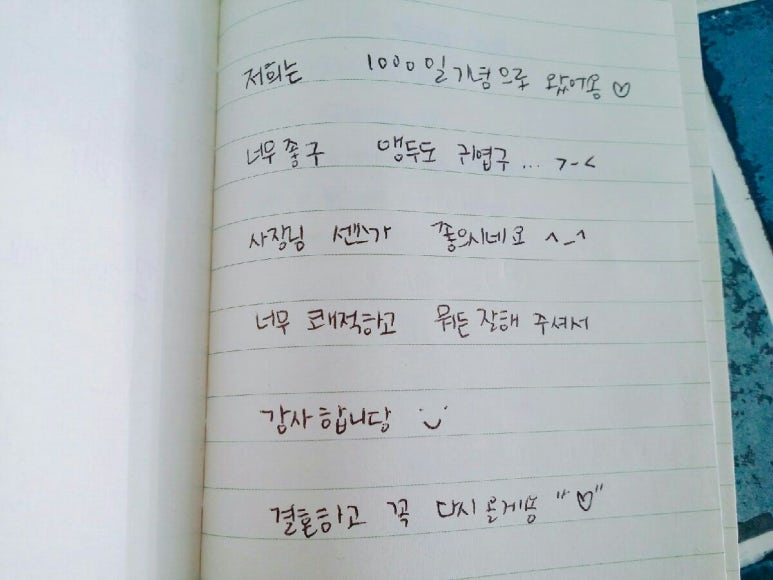 저희는 1000일 기념으로 왔어용 ♡
너무 좋구 앵두도 귀엽구... >-<
사장님 센스가 좋으시네요 ^_^
너무 쾌적하고 뭐든 잘해 주셔서
감사합니당
결혼하고 꼭 다시 올게용 "♡"